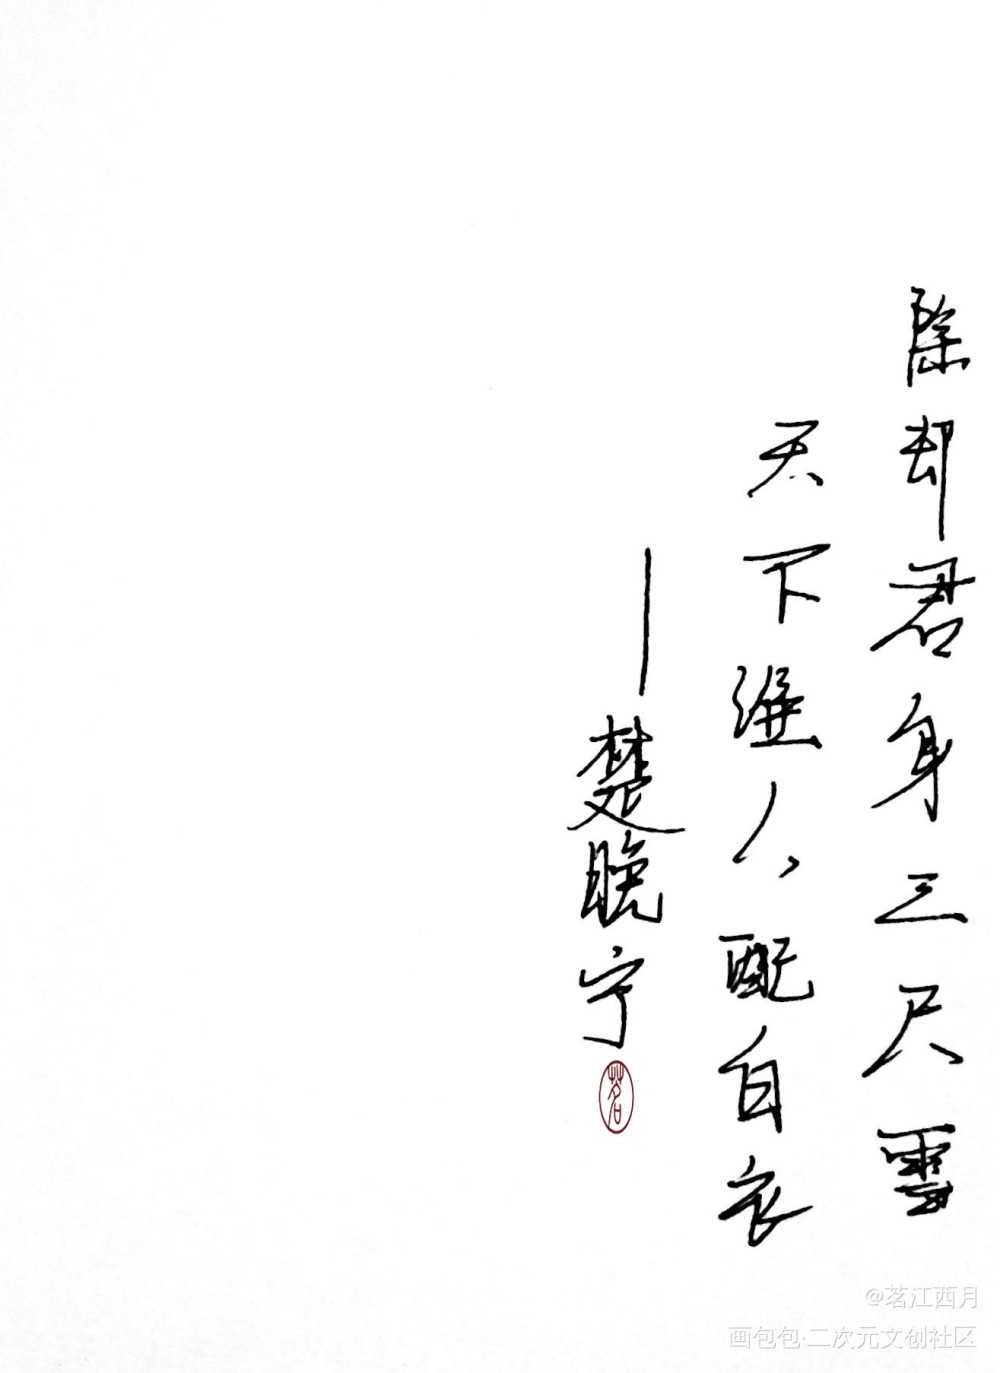 除却君身三尺雪
天下谁人配白衣
—楚晚宁
茗
@茗江西月
画包包·二次元文创社区